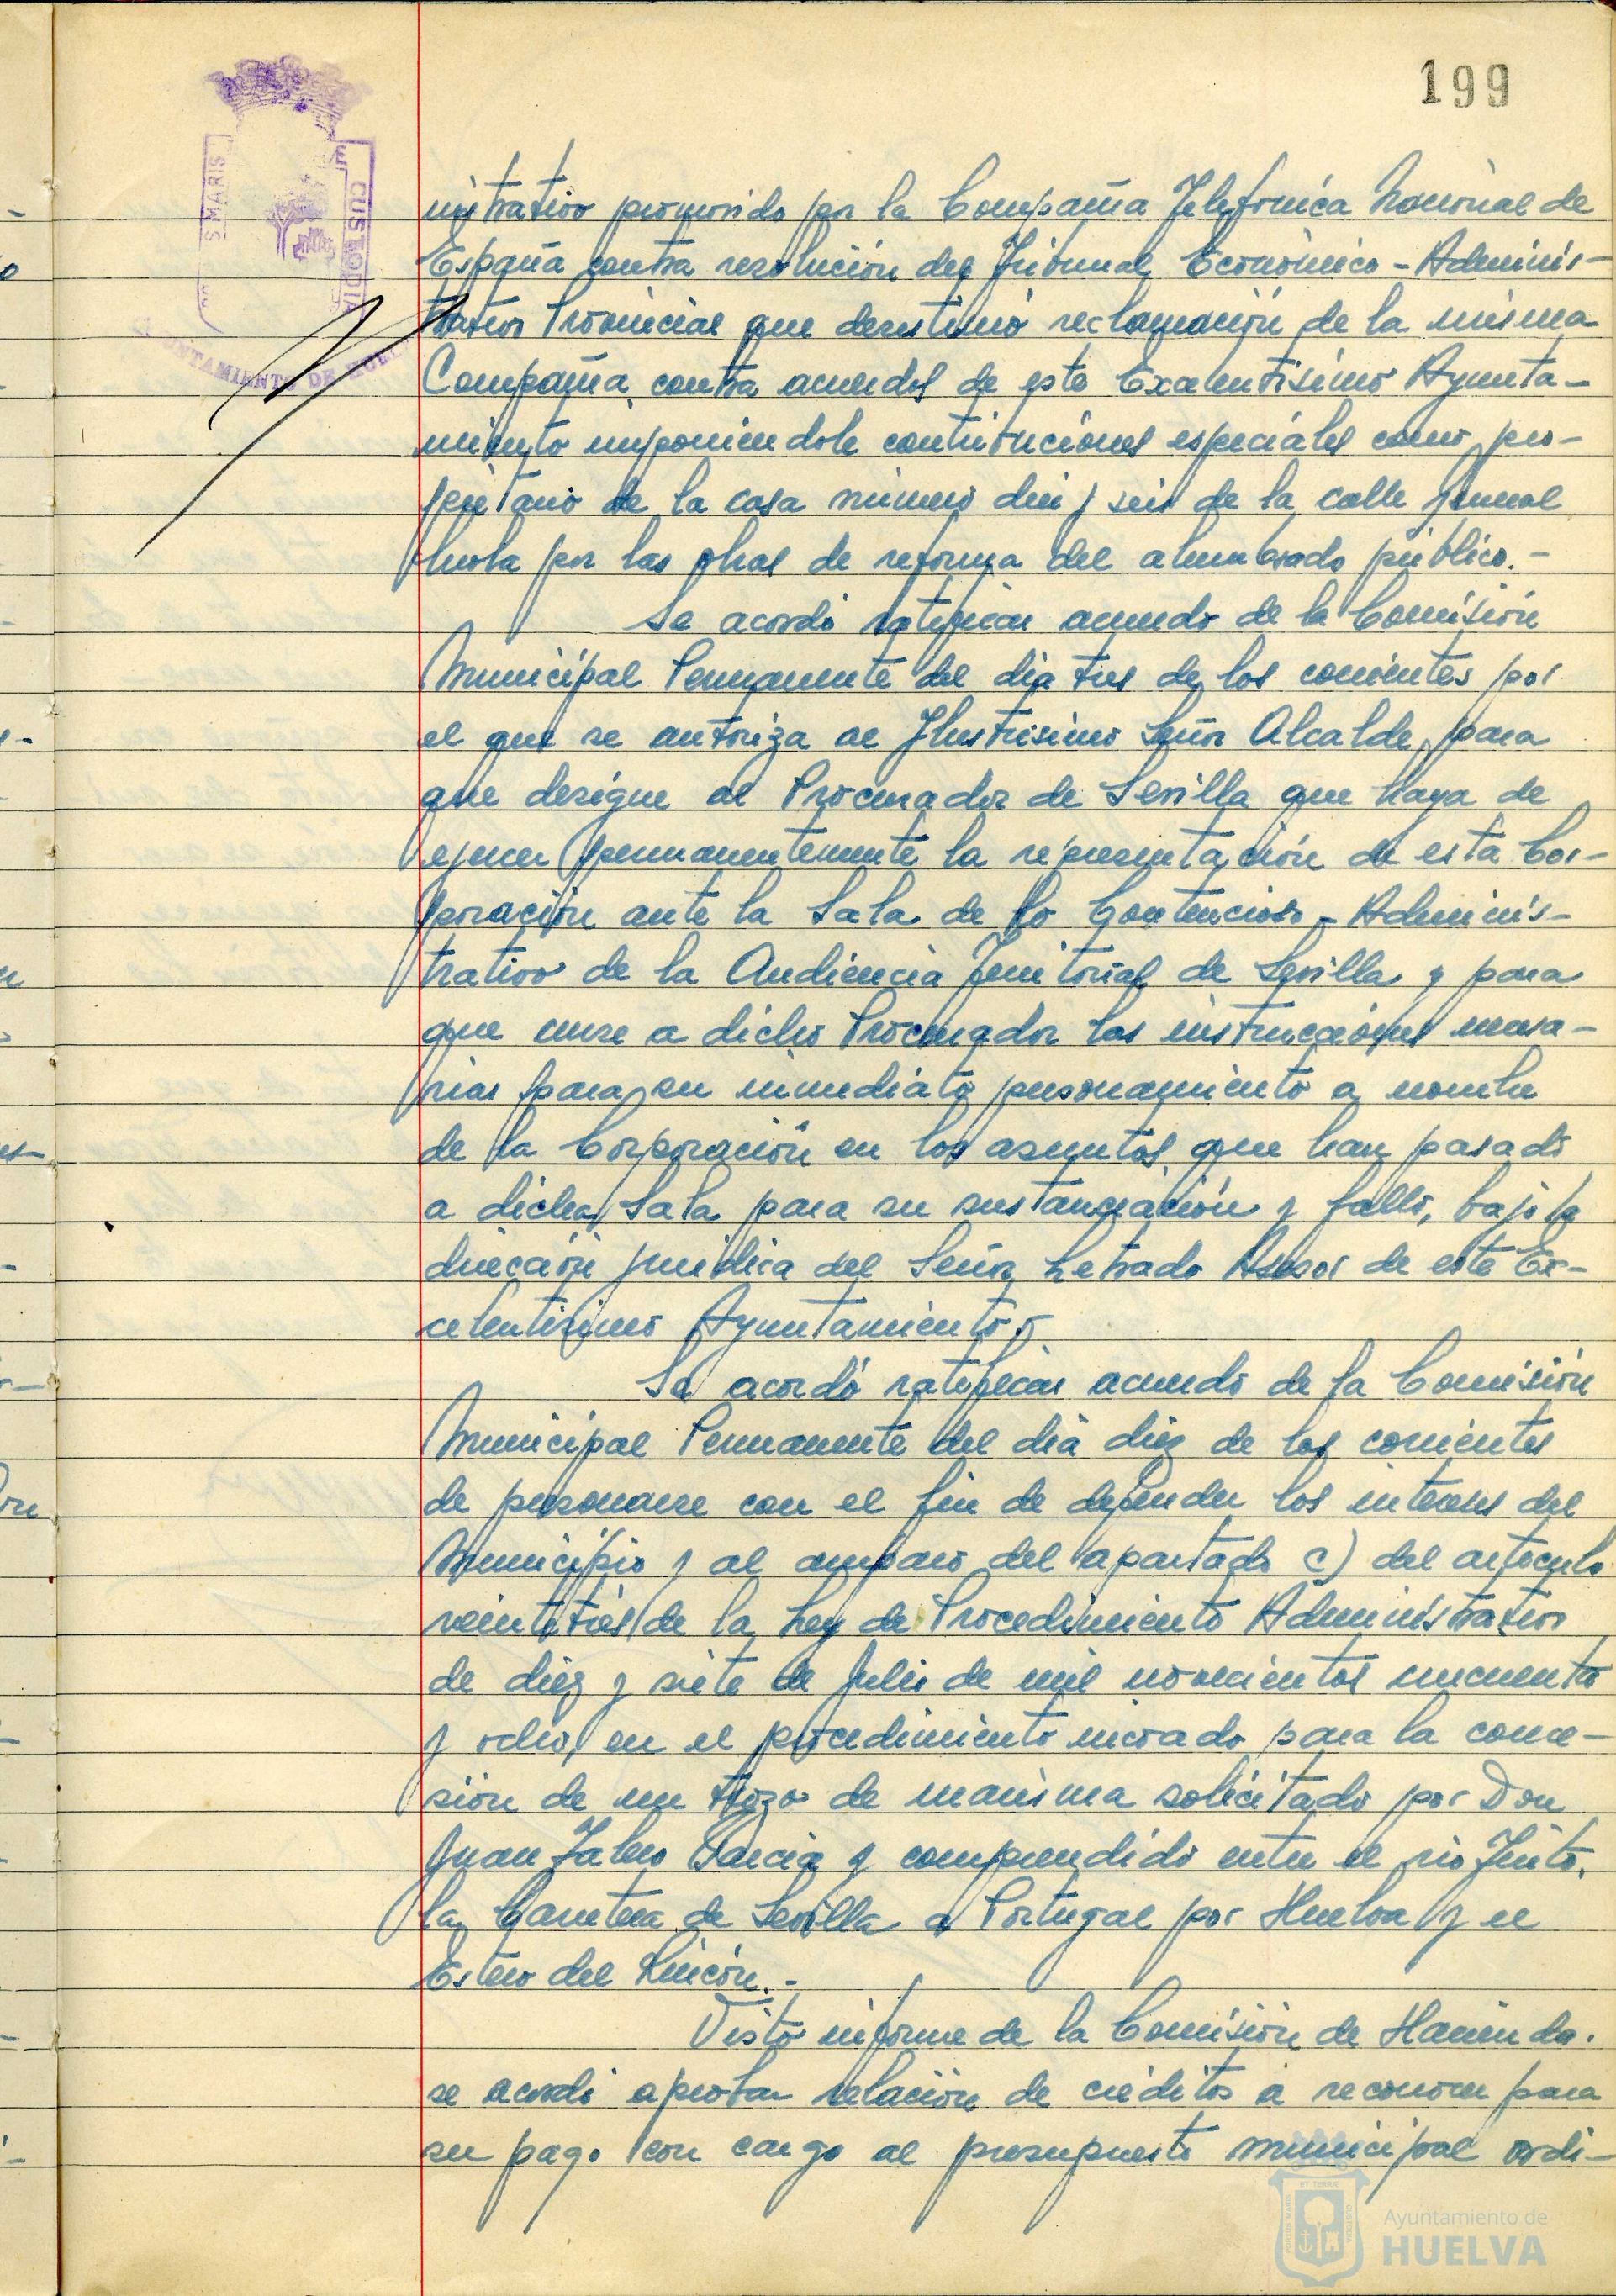 199
S. MARIS
E CUSTODIA
AYUNTAMIENTO DE HUELVA
nistrativo promovido por la Compañia Telefónica Nacional de
España contra resolución del Tribunal Económico-Adminis-
trativo Provincial que desestimó reclamación de la misma
Compañia contra acuerdos de este Excelentísimo Ayunta-
miento imponiendole contribuciones especiales como pro-
pietario de la casa número diez y seis de la calle General
Mola por las obras de reforma del alumbrado público.-
Se acordó ratificar acuerdo de la Comisión
Municipal Permanente del dia tres de los corrientes por
el que se autoriza al Ilustrisimo Señor Alcalde para
que designe al Procurador de Sevilla que haya de
ejercer permanentemente la representación de esta Cor-
poración ante la Sala de lo Contencioso-Adminis-
trativo de la Audiencia Territorial de Sevilla y para
que curse a dicho Procurador las instrucciones necesa-
rias para su inmediato personamiento a nombre
de la Corporación en los asuntos que han pasado
a dicha Sala para su sustanciación y fallo, bajo la
dirección juridica del Señor Letrado Asesor de este Ex-
celentisimo Ayuntamiento.-
Se acordó ratificar acuerdo de la Comisión
Municipal Permanente del dia diez de los corrientes
de personarse con el fin de defender los intereses del
Municipio y al amparo del apartado c) del articulo
veintitres de la Ley de Procedimiento Administrativo
de diez y siete de Julio de mil novecientos cincuenta
y ocho, en el procedimiento incoado para la conce-
sión de un trozo de marisma solicitado por Don
Juan Garcia y comprendido entre el rio Tinto,
la Carretera de Sevilla a Portugal por Huelva y el
Estero del Rincón.-
Visto informe de la Comisión de Hacienda.
se acordó aprobar relación de créditos a reconocer para
su pago con cargo al presupuesto municipal ordi-
Ayuntamiento de
HUELVA